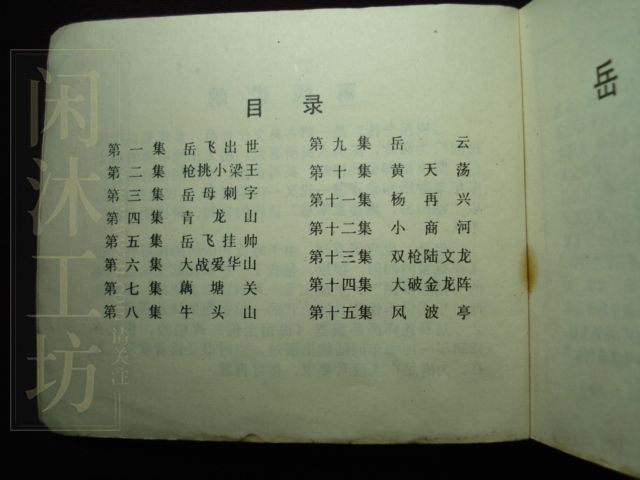 目录
第一集 岳飞出世
第二集 枪挑小梁王
第三集 岳母刺字
第四集 青龙山
第五集 岳飞挂帅
第六集 大战爱华山
第七集 藕塘关
第八集 牛头山
第九集 岳云
第十集 黄天荡
第十一集 杨再兴
第十二集 小商河
第十三集 双枪陆文龙
第十四集 大破金龙阵
第十五集 风波亭
岳
闲沐工坊
请关注